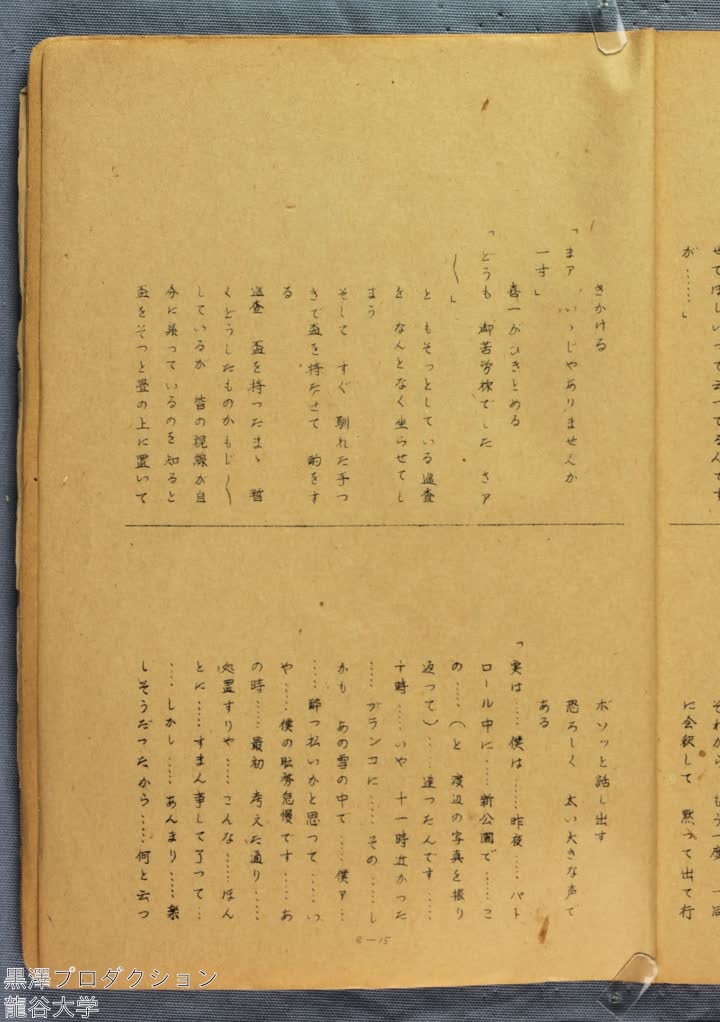 せてほしいって云ってるんです
が……」
きかける
「まァ いゝじゃありませんか
一寸」
喜一がひきとめる
「どうも 御苦労様でした さァ
〳〵」
と もそっとしている巡査
を なんとなく坐らせてし
まう
そして すぐ 馴れた手つ
きで盃を持たさせて 酌をす
る
巡査 盃を持ったまゝ 暫
くどうしたものかもじ〳〵
しているが 皆の視線が自
分に集っているのを知ると
盃をそっと畳の上に置いて
それから もう一度 一同
に会釈して 黙って出て行
ボソッと話し出す
恐ろしく 太い大きな声で
ある
「実は……僕は……昨夜……パト
ロール中に……新公園で……こ
の……(と 渡辺の写真を振り
返って)……逢ったんです……
十時……いや 十一時近かった
……ブランコに……その……し
かも あの雪の中で……僕ァ…
……酔っ払いかと思って……い
や……僕の職務怠慢です……あ
の時……最初 考えた通り……
処置すりや……こんな……ほん
とに……すまん事して了って…
……しかし……あんまり……楽
しそうだったから……何と云つ
2—15
黒澤プロダクション
龍谷大学